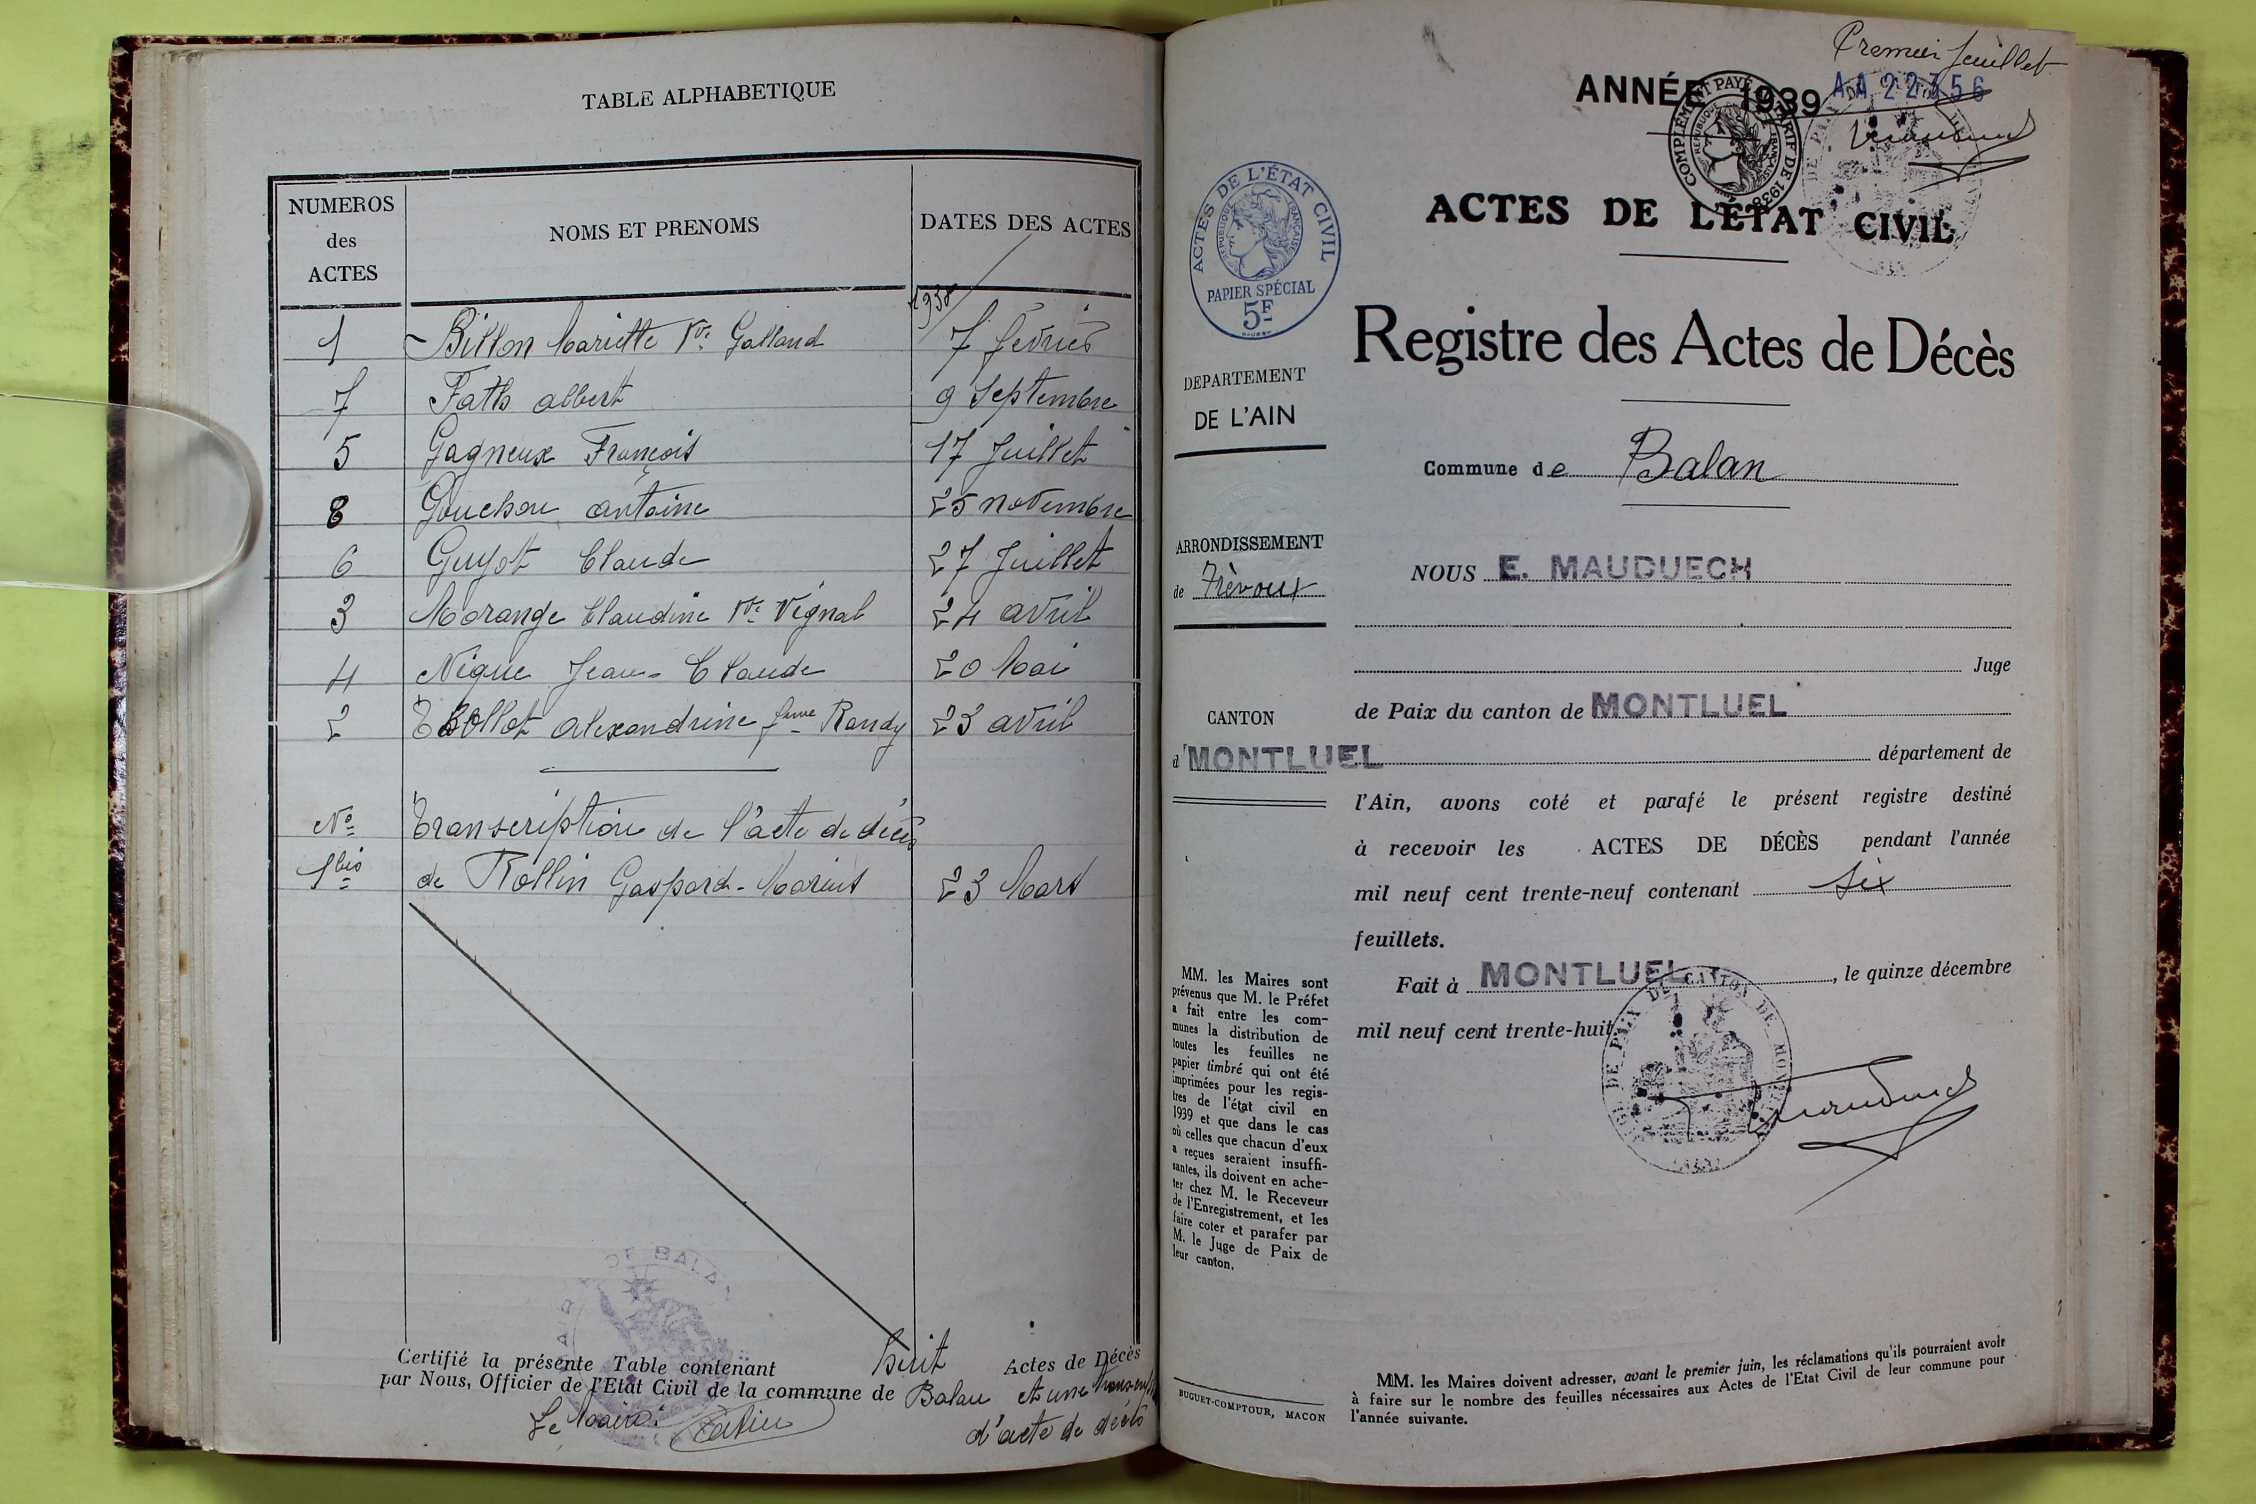 TABLE ALPHABETIQUE
NUMEROS des ACTES
NOMS ET PRENOMS
DATES DES ACTES
1938
1 Billon Mariette Vve Galland 7 février
7 Fath albert 9 Septembre
5 Gagneux François 17 Juillet
8 Gouchon antoine 25 novembre
6 Guyot Claude 27 Juillet
3 Morange Claudine Vve Vignal 24 avril
4 Nique Jean-Claude 20 Mai
2 Alexandrine fme Randy 23 avril
No 1bis
Transcription de l'acte de décès
de Rollin Gaspard-Marius 23 Mars
Certifié la présente Table contenant huit Actes de Décès
par Nous, Officier de l'Etat Civil de la commune de Balan et une
d'acte de décès
Le Maire:
DE BALAN
Premier feuillet
ANNÉE 1939
AA 22356
COMPLÉMENT PAYÉ TARIF DE 1938
REPUBLIQUE FRANÇAISE
ACTES DE L'ÉTAT CIVIL
ACTES DE L'ÉTAT CIVIL
REPUBLIQUE FRANÇAISE
PAPIER SPÉCIAL
5F
Registre des Actes de Décès
DEPARTEMENT
DE L'AIN
Commune de Balan
ARRONDISSEMENT
de Trévoux
CANTON
d MONTLUEL
NOUS E. MAUDUECH
Juge
de Paix du canton de MONTLUEL
département de
l'Ain, avons coté et parafé le présent registre destiné
à recevoir les ACTES DE DÉCÈS pendant l'année
mil neuf cent trente-neuf contenant six
feuillets.
Fait à MONTLUEL, le quinze décembre
mil neuf cent trente-huit.
DE PAIX DU CANTON DE
MM. les Maires sont
prévenus que M. le Préfet
a fait entre les com-
munes la distribution de
toutes les feuilles ne
papier timbré qui ont été
imprimées pour les regis-
tres de l'état civil en
1939 et que dans le cas
où celles que chacun d'eux
a reçues seraient insuffi-
santes, ils doivent en ache-
ter chez M. le Receveur
de l'Enregistrement, et les
faire coter et parafer par
M. le Juge de Paix de
leur canton.
BUGUET-COMPTOUR, MACON
MM. les Maires doivent adresser, avant le premier juin, les réclamations qu'ils pourraient avoir
à faire sur le nombre des feuilles nécessaires aux Actes de l'Etat Civil de leur commune pour
l'année suivante.